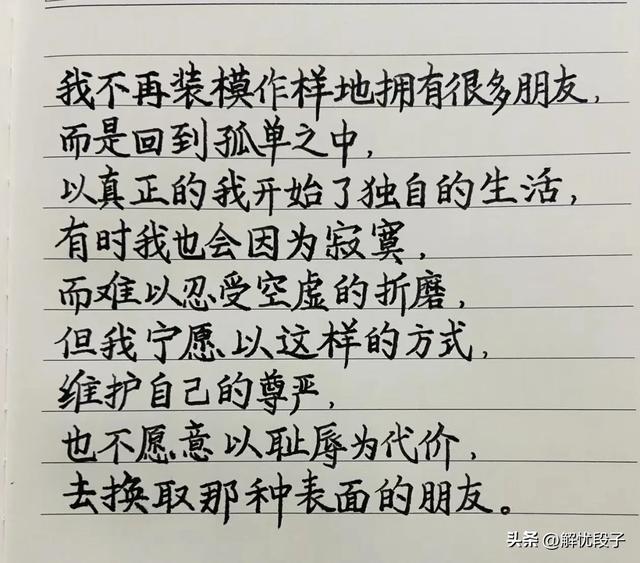 我不再装模作样地拥有很多朋友，
而是回到孤单之中，
以真正的我开始了独自的生活，
有时我也会因为寂寞，
而难以忍受空虚的折磨，
但我宁愿以这样的方式，
维护自己的尊严，
也不愿意以耻辱为代价，
去换取那种表面的朋友。
头条 @解忧段子